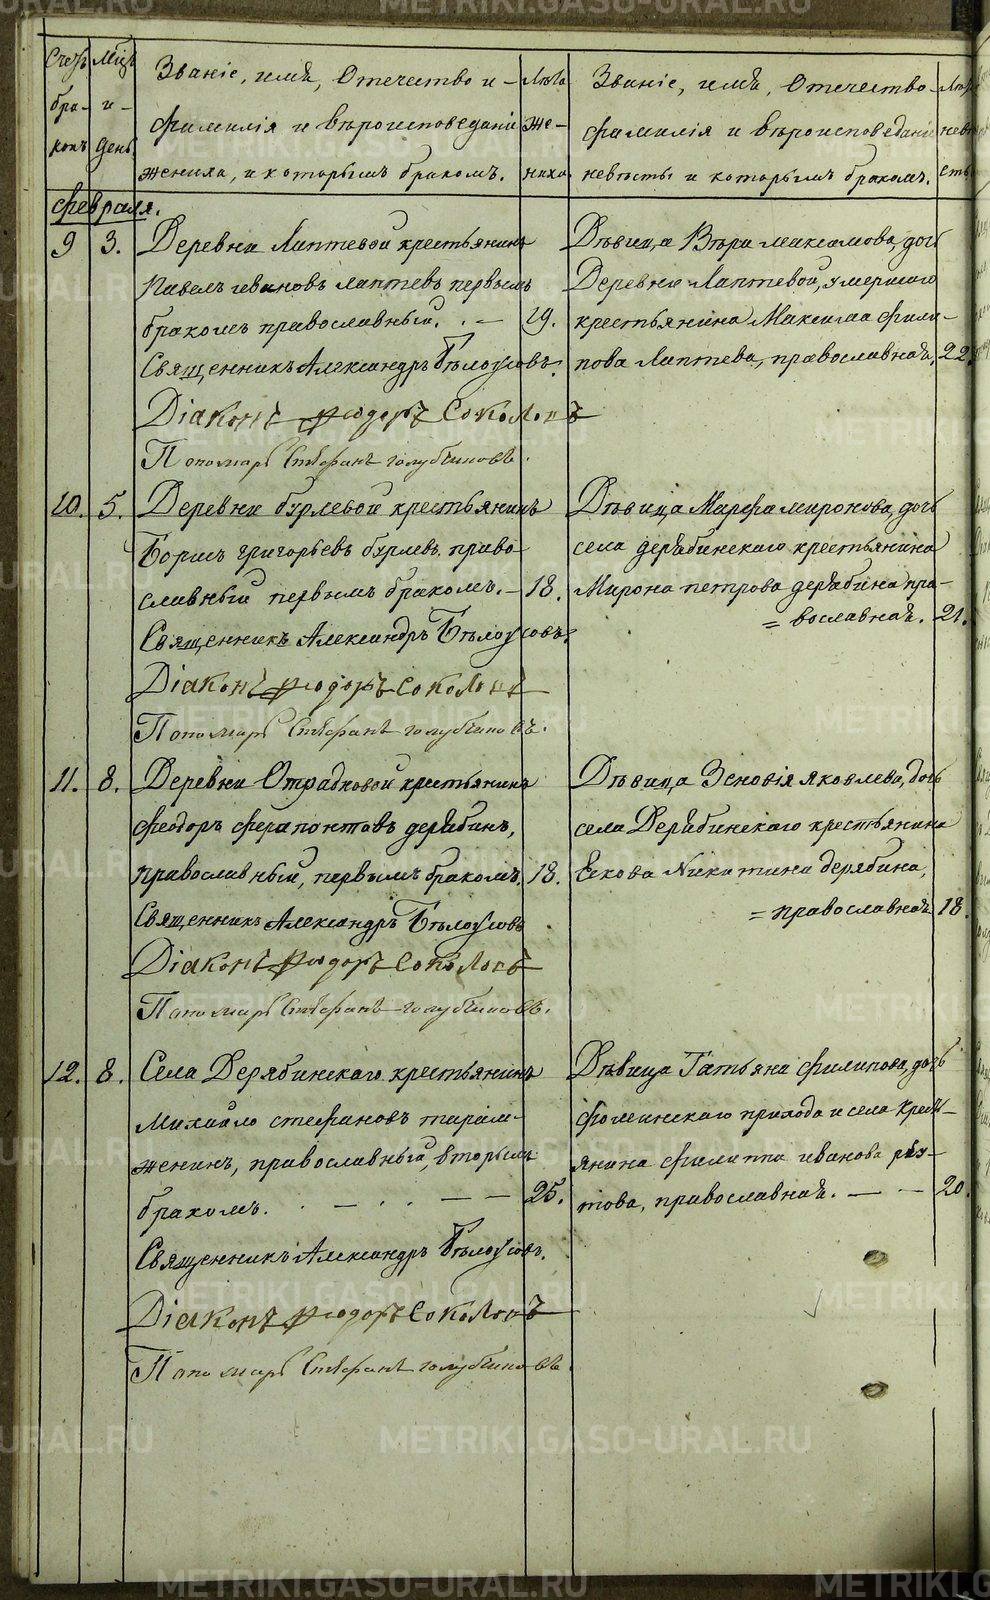 METRIKI.GASO-URAL.RU
Счетъ бра- ковъ
Мѣц. и день.
Званіе, имя, Отечество и
фамилія и вѣроисповеданіе
жениха, и которымъ бракомъ.
Лѣта же- ниха
Званіе, имя, Отечество
фамилія и вѣроисповеданіе
невѣсты и которымъ бракомъ.
Лѣта невѣ сты
Февраля.
9 3. Деревни Лаптевой крестьянинъ
Павелъ ивановъ лаптевъ первымъ
бракомъ православный. 19.
Священникъ Александръ Бѣлоусовъ.
Діаконъ Ѳеодоръ Соколовъ
Пономарь Стефанъ голубчиковъ.
Дѣвица Вѣра максимова, дочь
Деревни Лаптевой, умершаго
крестьянина Максима фили-
пова Лаптева, православная, 22.
10. 5. Деревни бурлевой крестьянинъ
Борисъ григорьевъ бурлевъ право-
славный первымъ бракомъ. 18.
Священникъ Александръ Бѣлоусовъ.
Діаконъ Ѳеодоръ Соколовъ
Пономарь Стефанъ голубчиковъ.
Дѣвица Марфа миронова, дочь
села дерябинскаго крестьянина
Мирона петрова дерябина пра-
= вославная. 21.
11. 8. Деревни Отрадновой крестьянинъ
феодоръ ферапонтовъ дерябинъ,
православный, первымъ бракомъ, 18.
Священникъ Александръ Бѣлоусовъ
Діаконъ Ѳеодоръ Соколовъ
Пономарь Стефанъ голубчиковъ.
Дѣвица Зеновія яковлева, дочь
села Дерябинскаго крестьянина
Екова Никитина дерябина,
= православная. 18.
12. 8. Села Дерябинскаго крестьянинъ
Михайло стефановъ
женинъ, православный, вторымъ
бракомъ. 25.
Священникъ Александръ Бѣлоусовъ.
Діаконъ Ѳеодоръ Соколовъ
Пономарь Стефанъ голубчиковъ.
Дѣвица Татьяна филипова, дочь
фоминскаго прихода и села крест-
янина филиппа иванова
това, православная. 20.